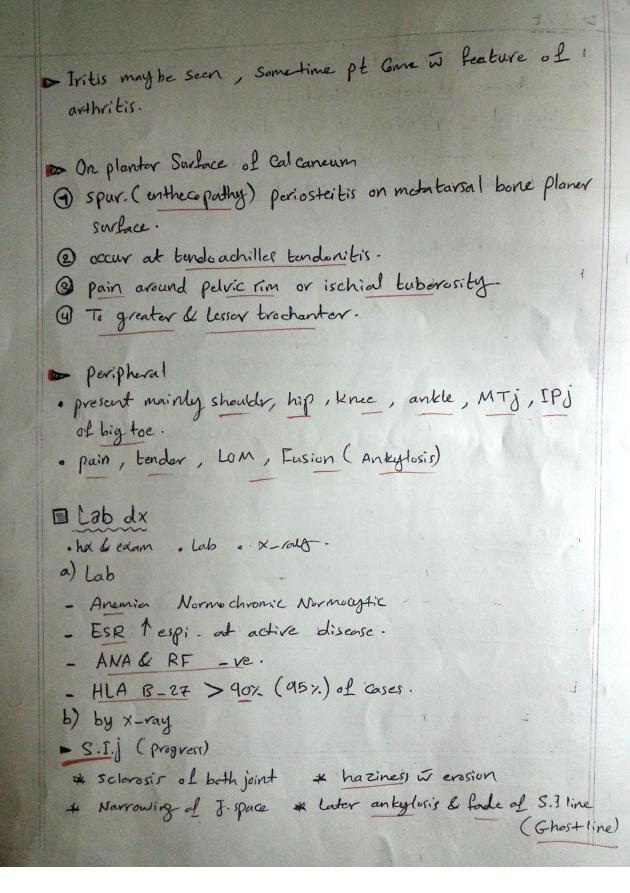 Iritis may be seen, sometime pt come w̄ feature of
arthritis.
On planter Surface of Calcaneum
① spur. (enthecopathy) periosteitis on metatarsal bone planer
surface.
② occur at tendoachilles tendonitis.
③ pain around pelvic rim or ischial tuberosity.
④ To greater & lesser trochanter.
peripheral
• present mainly shouldr, hip, knee, ankle, MTj, IPj
of big toe.
• pain, tender, LOM, Fusion (Ankylosis)
Lab dx
• hx & exam • Lab • x-ray.
a) Lab
- Anemia Normochromic Normocytic
- ESR ↑ espi. at active disease.
- ANA & RF -ve.
- HLA B-27 > 90% (95%) of cases.
b) by x-ray
S.I.j (progress)
* sclorosis of both joint * haziness w̄ erosion
* Narrowing of J.space * Later ankylosis & fade of S.I line
(Ghost line)